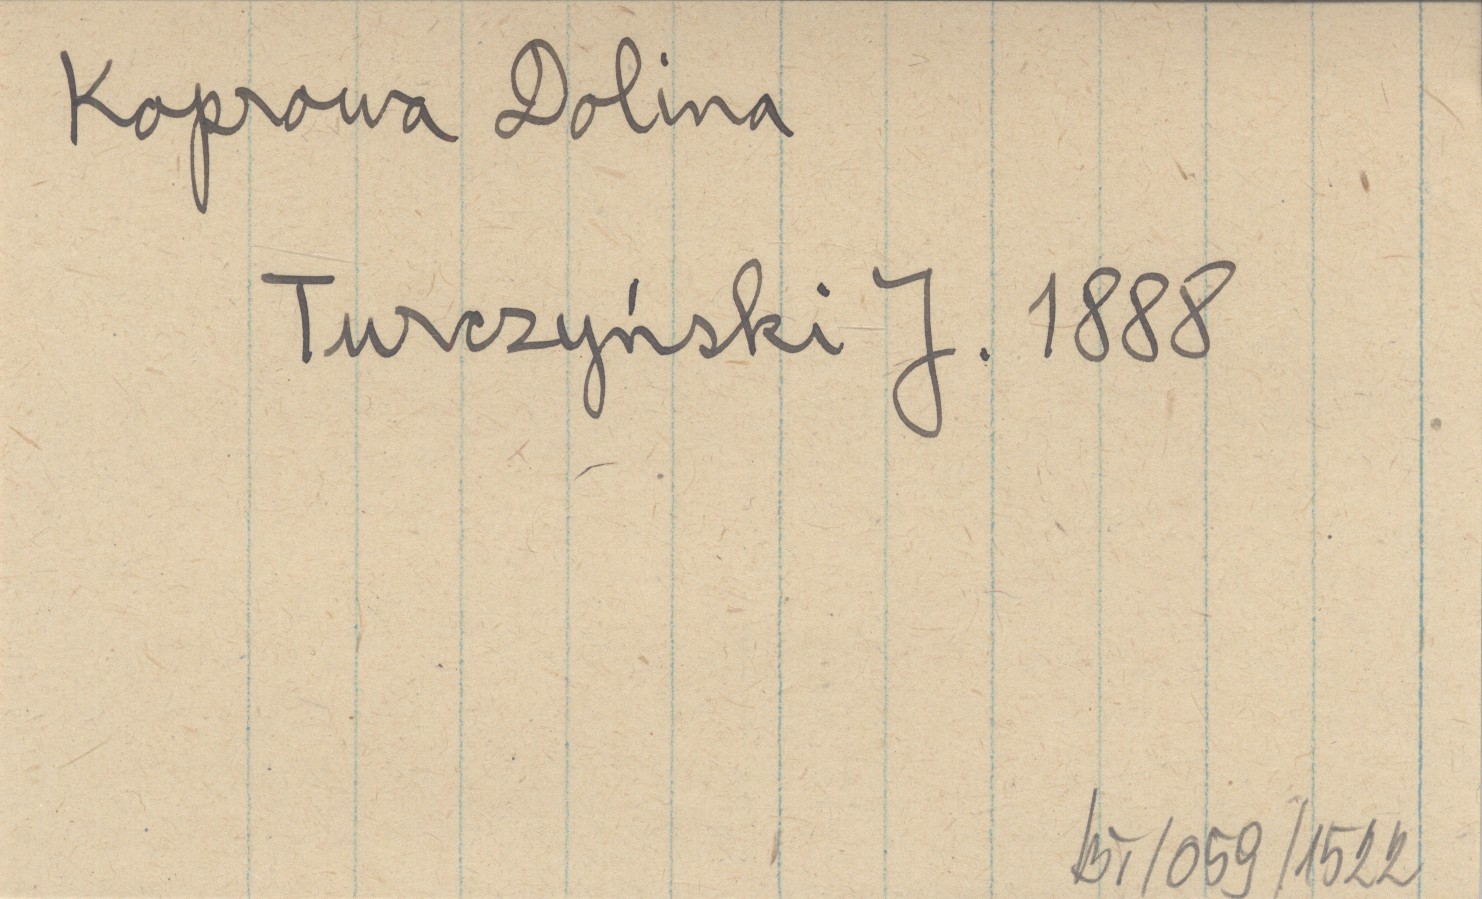 Koprowa Dolina
Turczyński J. 1888
BT/059/1522